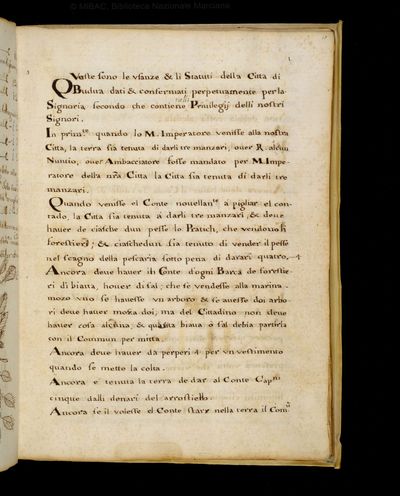 © MIBAC, Biblioteca Nazionale Marciana
Queste sono le usanze & li Statuti della Citta di
Budua dati & confermati perpetuamente per la
Signoria secondo che contiene nelli Privilegij delli nostri
Signori.
In prima quando lo M. Imperatore venisse alla nostra
Citta, la terra sia tenuta di darli tre manzari, over R. alcun
Nuntio, over Ambacciatore fosse mandato per M. Impe-
ratore della nra Citta la Citta sia tenuta di darli tre
manzari.
Quando venisse el Conte novellamte à pigliar el con-
tado, la Citta sia tenuta á darli tre manzari, & deve
haver de ciasche dun pesse lo Pratich, che vendono li
forestieri; & ciaschedun sia tenuto di vender il pesse
nel scagno della pescaria sotto pena di darari quatro, 4
Ancora deve haver ili Conte d'ogni Barca de forestie-
ri di biava, hover di sal; che se vendesse alla marina
mozo uno se havesse un arboro & se avesse doi arbo-
ri deve haver doi; ma del Cittadino non deve
haver cosa alcuna, & questa biava ò sal debia partirla
con il Commun per mitta.
Ancora deve haver da perperi 4 per un vestimento
quando se mette la colta.
Ancora e tenuta la terra de dar al Conte
cinque dalli denari del arrostiello.
Ancora se il volesse el Conte starx nella terra il Com